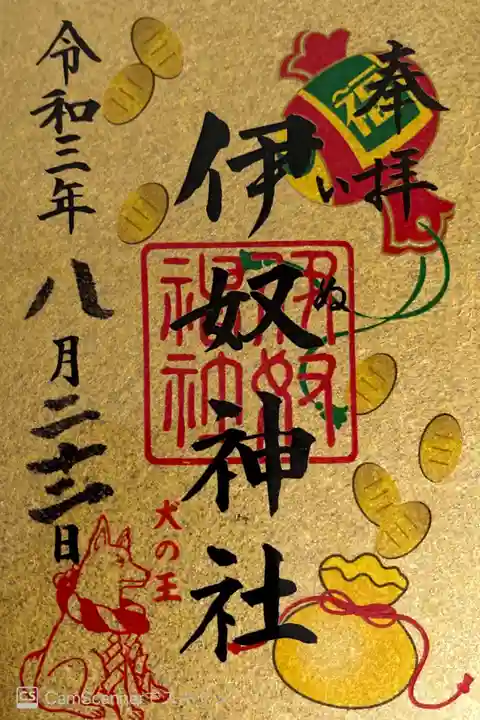 奉拝
福
伊奴神社
いぬ
犬の王
令和三年八月二十二日
CS CamScanner